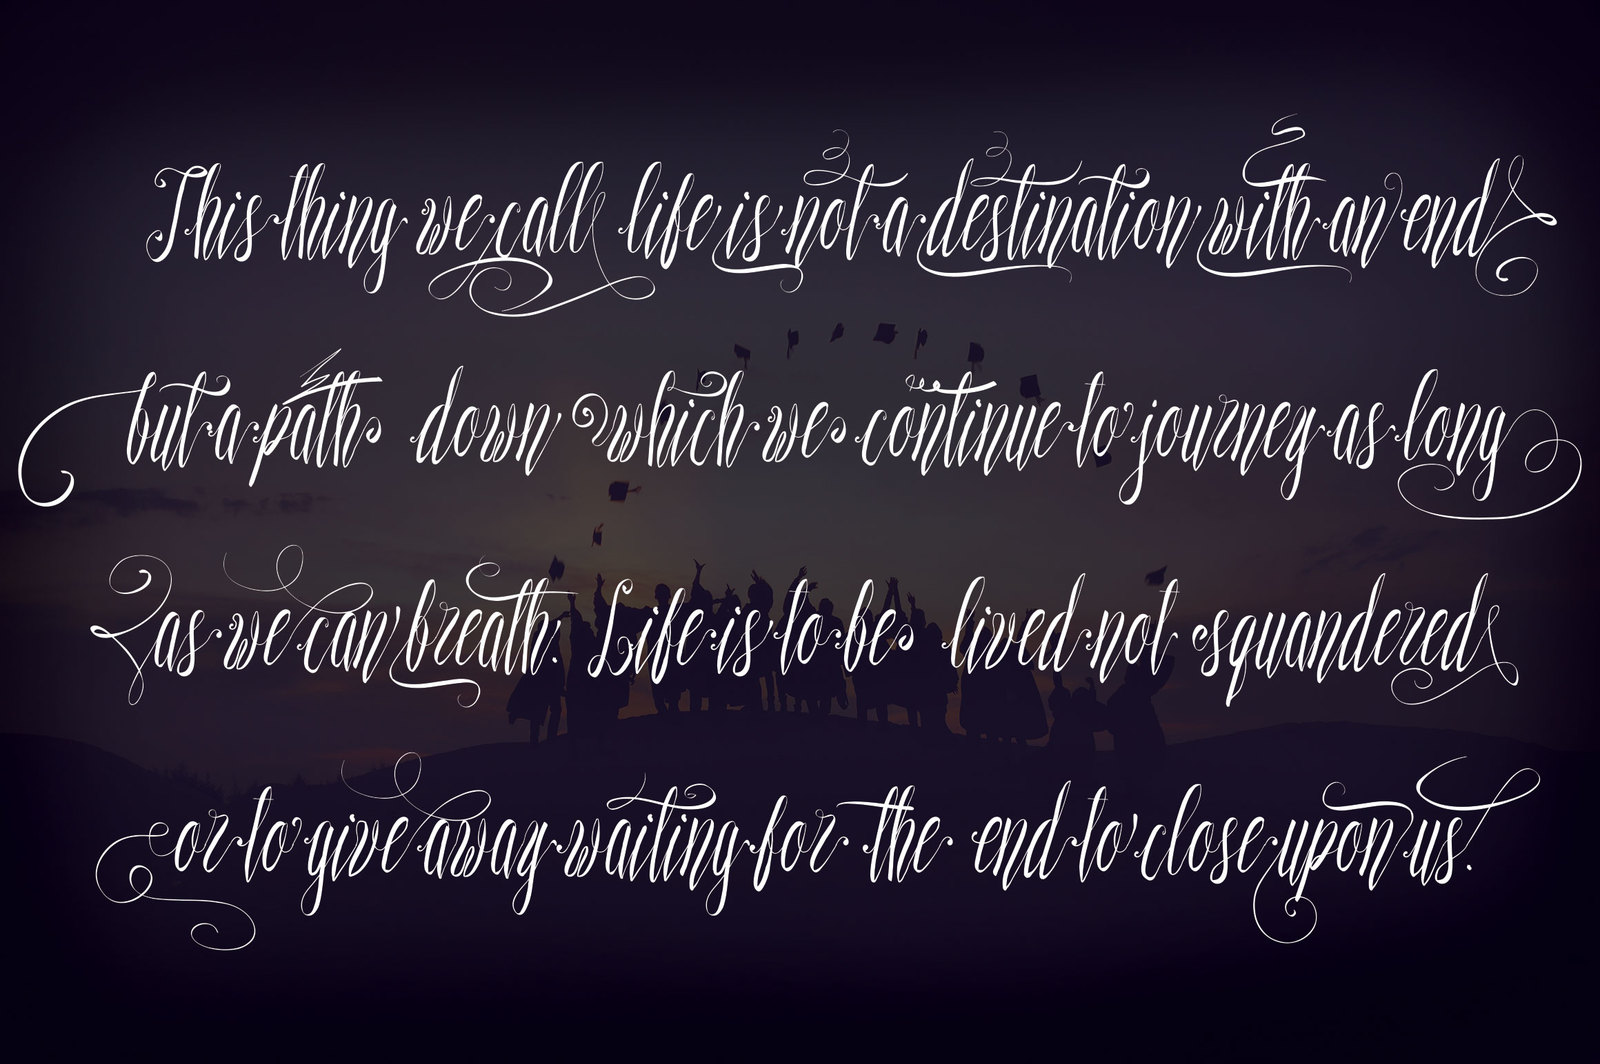 This thing we call life is not a destination with an end
but a path down which we continue to journey as long
as we can breath. Life is to be lived not squandered
or to give away waiting for the end to close upon us.